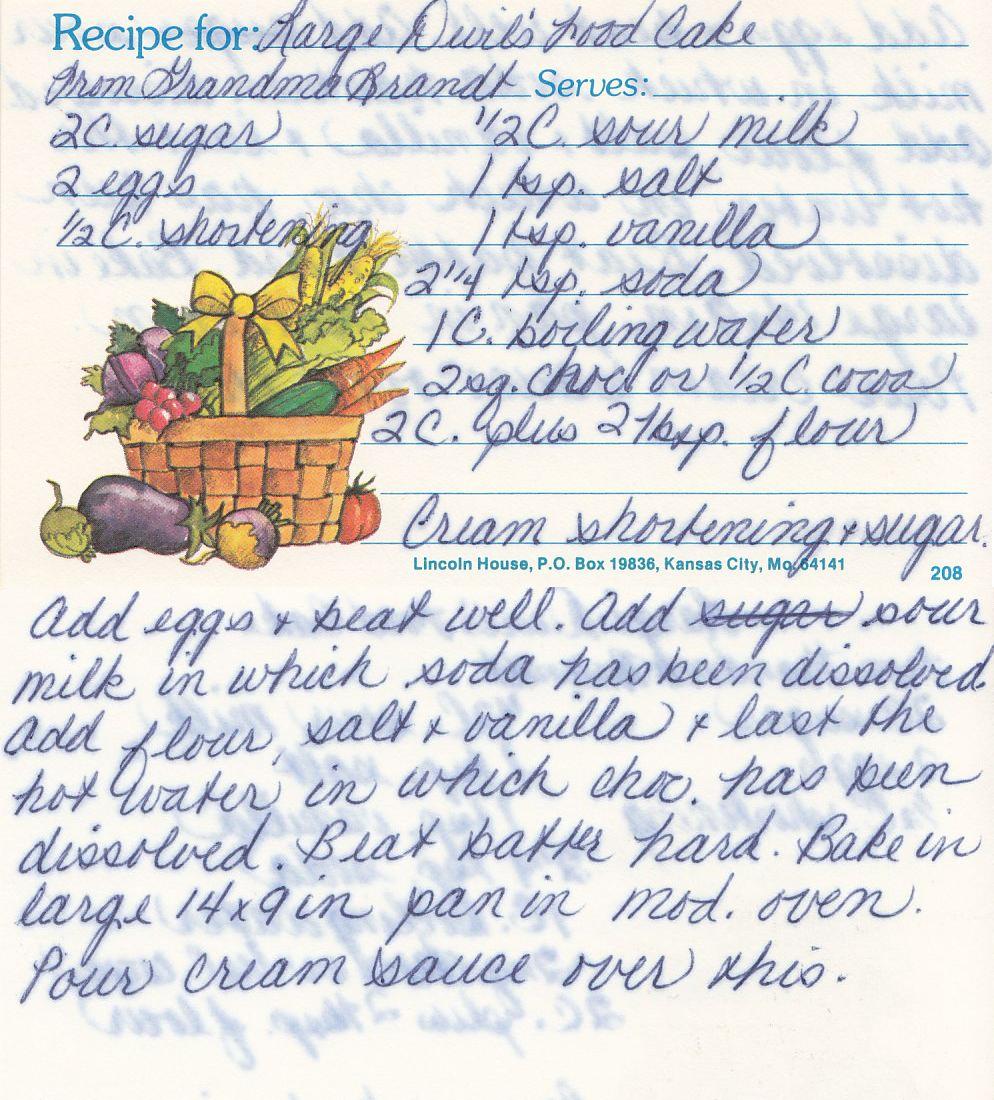 Recipe for: Large Devil's Food Cake
From Grandma Brandt Serves:
2C. sugar 1/2C. sour milk
2 eggs 1 tsp. salt
1/2C. shortening 1 tsp. vanilla
2 1/4 tsp. soda
1C. boiling water
2sq. choc or 1/2C. cocoa
2C. plus 2Tbsp. flour
Cream shortening & sugar.
Lincoln House, P.O. Box 19836, Kansas City, Mo. 64141
208
Add eggs & beat well. Add sugar sour
milk in which soda has been dissolved
Add flour, salt & vanilla & last the
hot water in which choc. has been
dissolved. Beat batter hard. Bake in
large 14x9 in pan in mod. oven.
Pour cream sauce over this.